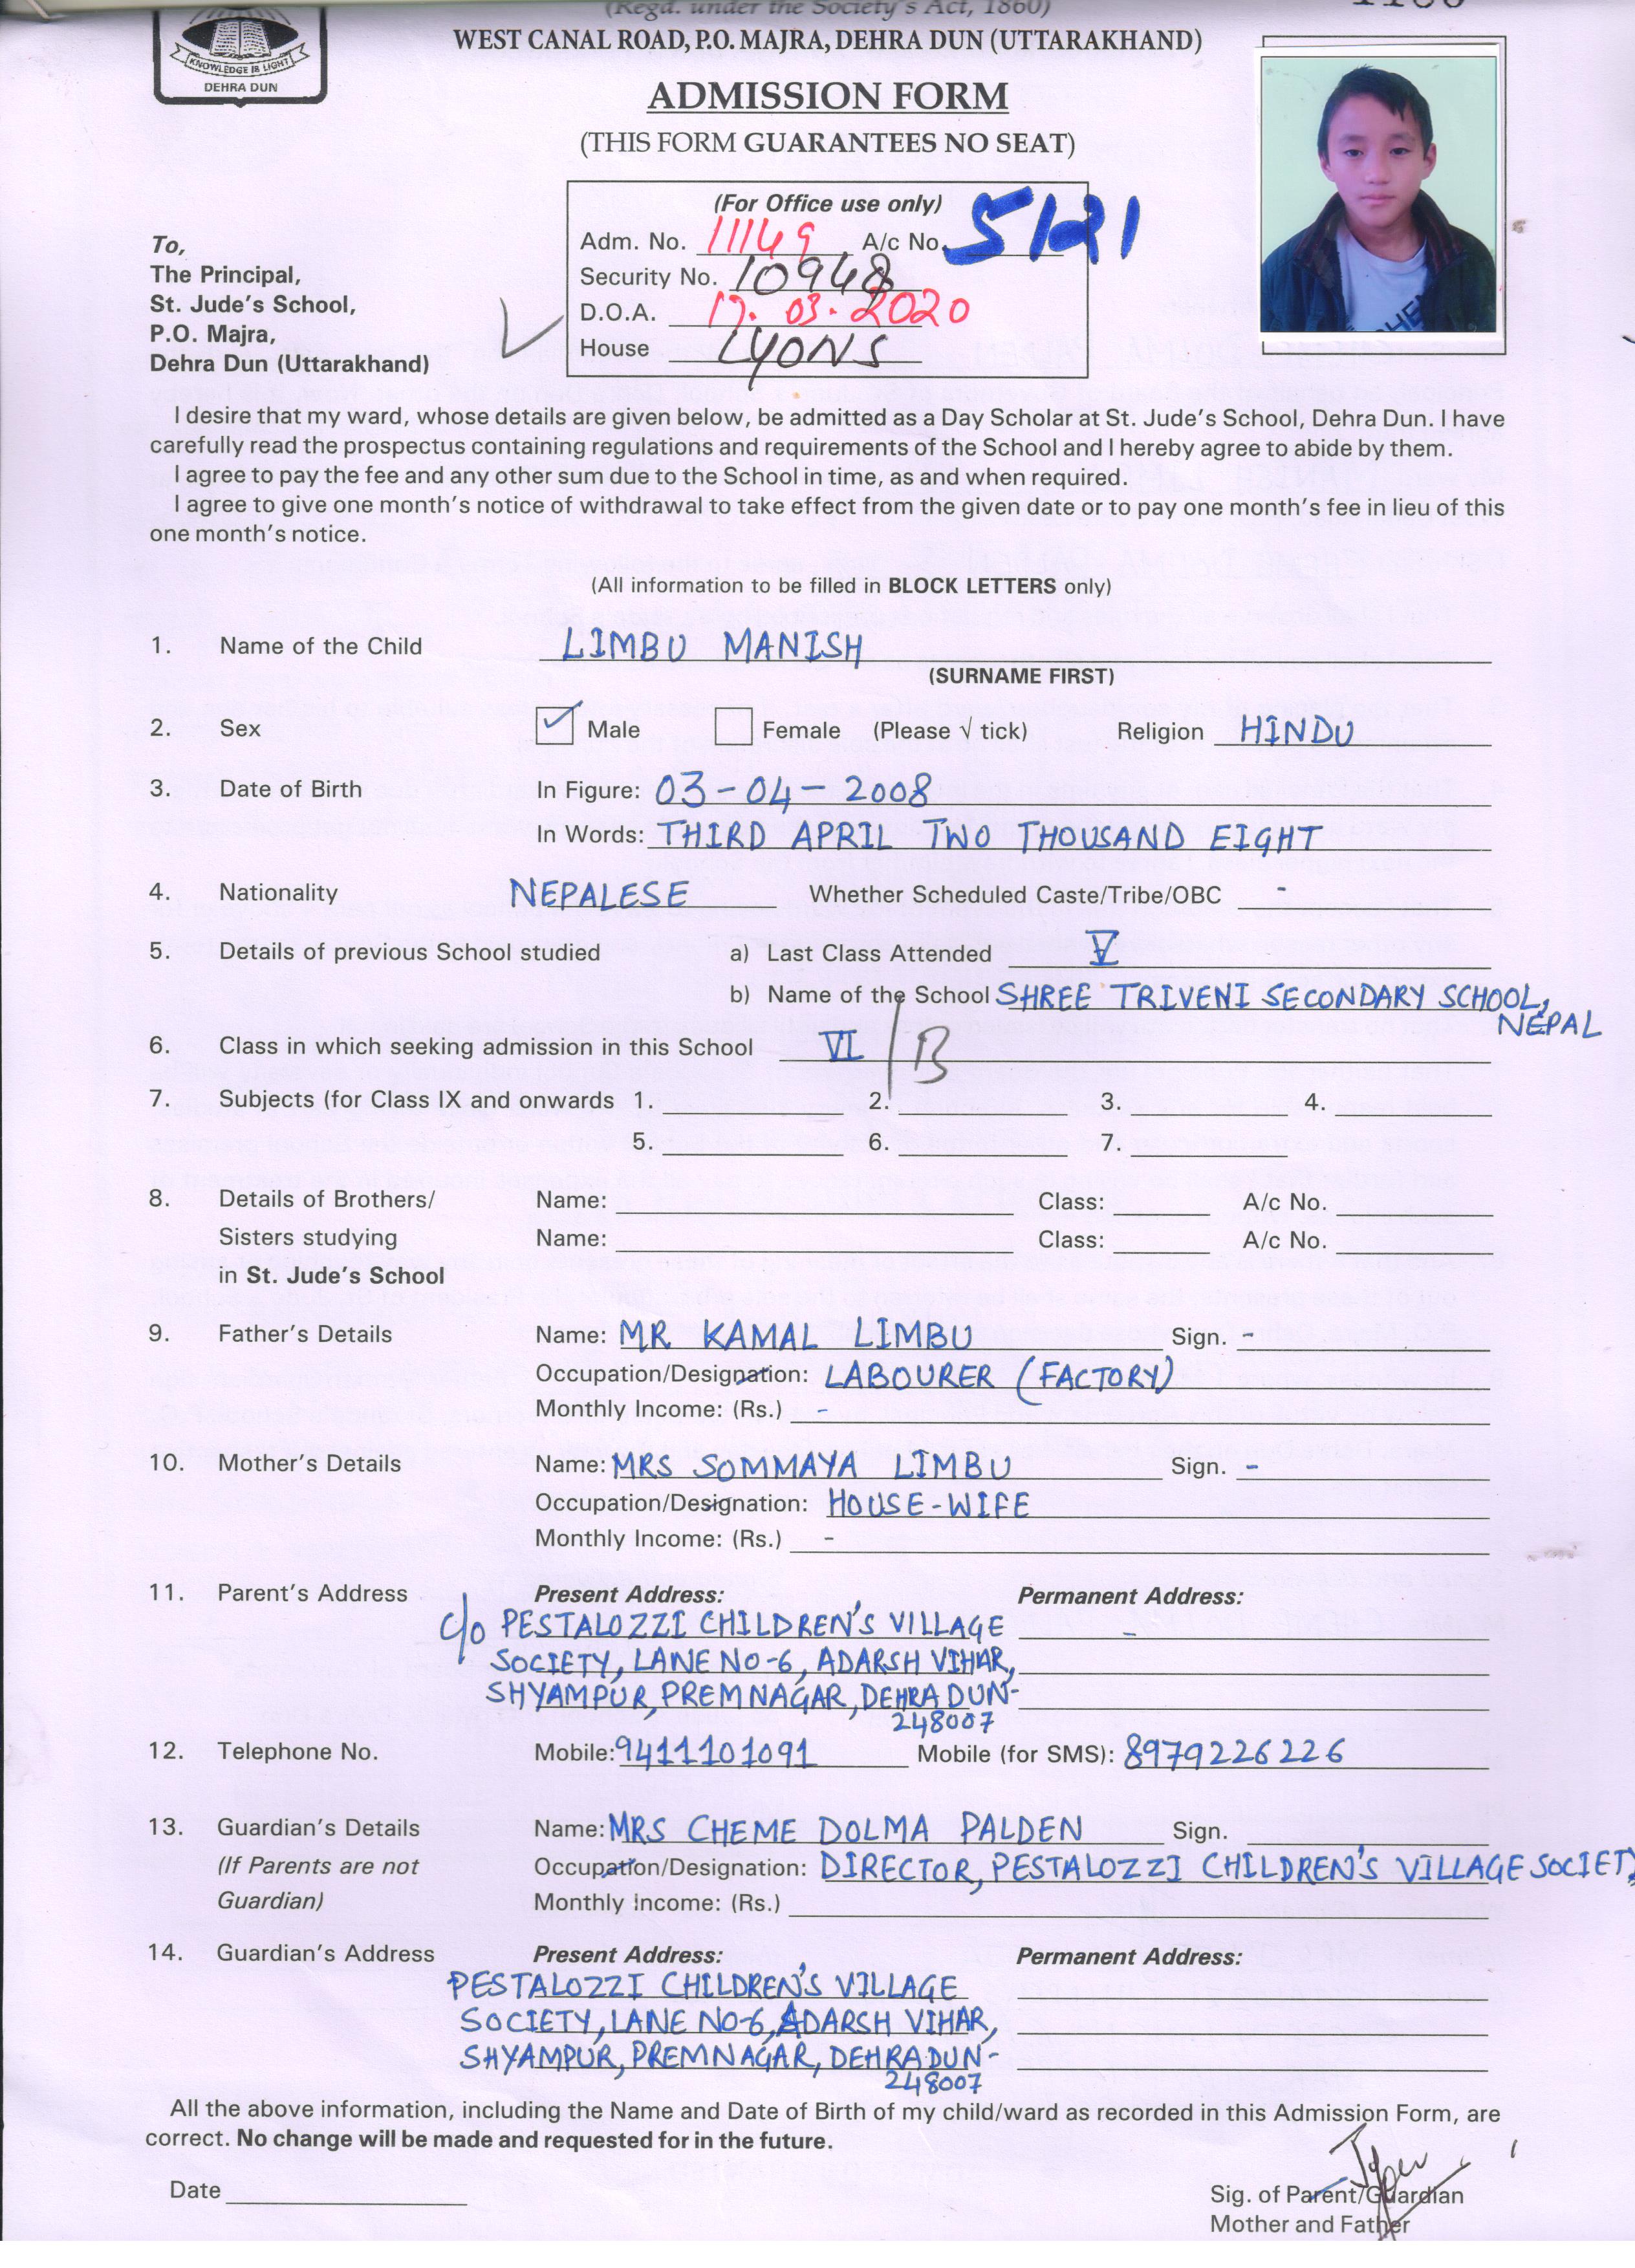 (Regd. under the Society's Act, 1860)
WEST CANAL ROAD, P.O. MAJRA, DEHRA DUN (UTTARAKHAND)
KNOWLEDGE IS LIGHT
DEHRA DUN
ADMISSION FORM
(THIS FORM GUARANTEES NO SEAT)
(For Office use only)
Adm. No. 11149 A/c No. 5121
Security No. 10948
D.O.A. 17.03.2020
House LYONS
To,
The Principal,
St. Jude's School,
P.O. Majra,
Dehra Dun (Uttarakhand)
I desire that my ward, whose details are given below, be admitted as a Day Scholar at St. Jude's School, Dehra Dun. I have
carefully read the prospectus containing regulations and requirements of the School and I hereby agree to abide by them.
I agree to pay the fee and any other sum due to the School in time, as and when required.
I agree to give one month's notice of withdrawal to take effect from the given date or to pay one month's fee in lieu of this
one month's notice.
(All information to be filled in BLOCK LETTERS only)
1. Name of the Child LIMBU MANISH
(SURNAME FIRST)
2. Sex ✓ Male Female (Please √ tick) Religion HINDU
3. Date of Birth In Figure: 03-04-2008
In Words: THIRD APRIL TWO THOUSAND EIGHT
4. Nationality NEPALESE Whether Scheduled Caste/Tribe/OBC -
5. Details of previous School studied a) Last Class Attended V
b) Name of the School SHREE TRIVENI SECONDARY SCHOOL,
NEPAL
6. Class in which seeking admission in this School VI / B
7. Subjects (for Class IX and onwards 1. 2. 3. 4.
5. 6. 7.
8. Details of Brothers/ Name: Class: A/c No.
Sisters studying Name: Class: A/c No.
in St. Jude's School
9. Father's Details Name: MR KAMAL LIMBU Sign. -
Occupation/Designation: LABOURER (FACTORY)
Monthly Income: (Rs.) -
10. Mother's Details Name: MRS SOMMAYA LIMBU Sign. -
Occupation/Designation: HOUSE-WIFE
Monthly Income: (Rs.) -
11. Parent's Address Present Address: Permanent Address:
C/O PESTALOZZI CHILDREN'S VILLAGE -
SOCIETY, LANE NO-6, ADARSH VIHAR,
SHYAMPUR, PREMNAGAR, DEHRA DUN-
248007
12. Telephone No. Mobile: 9411101091 Mobile (for SMS): 8979226226
13. Guardian's Details Name: MRS CHEME DOLMA PALDEN Sign.
(If Parents are not Occupation/Designation: DIRECTOR, PESTALOZZI CHILDREN'S VILLAGE SOCIETY
Guardian) Monthly Income: (Rs.)
14. Guardian's Address Present Address: Permanent Address:
PESTALOZZI CHILDREN'S VILLAGE
SOCIETY, LANE NO-6, ADARSH VIHAR,
SHYAMPUR, PREMNAGAR, DEHRADUN-
248007
All the above information, including the Name and Date of Birth of my child/ward as recorded in this Admission Form, are
correct. No change will be made and requested for in the future.
Date
Sig. of Parent/Guardian
Mother and Father